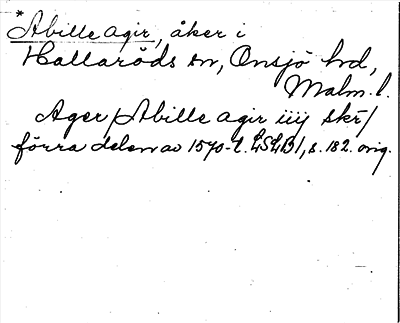 *Abille agir, åker i
Hallaröds sn, Onsjö hd,
Malm. l.
Ager / Abille agir iiij skr̄ /
förra delen av 1570-t. LSLB1, s. 182. orig.